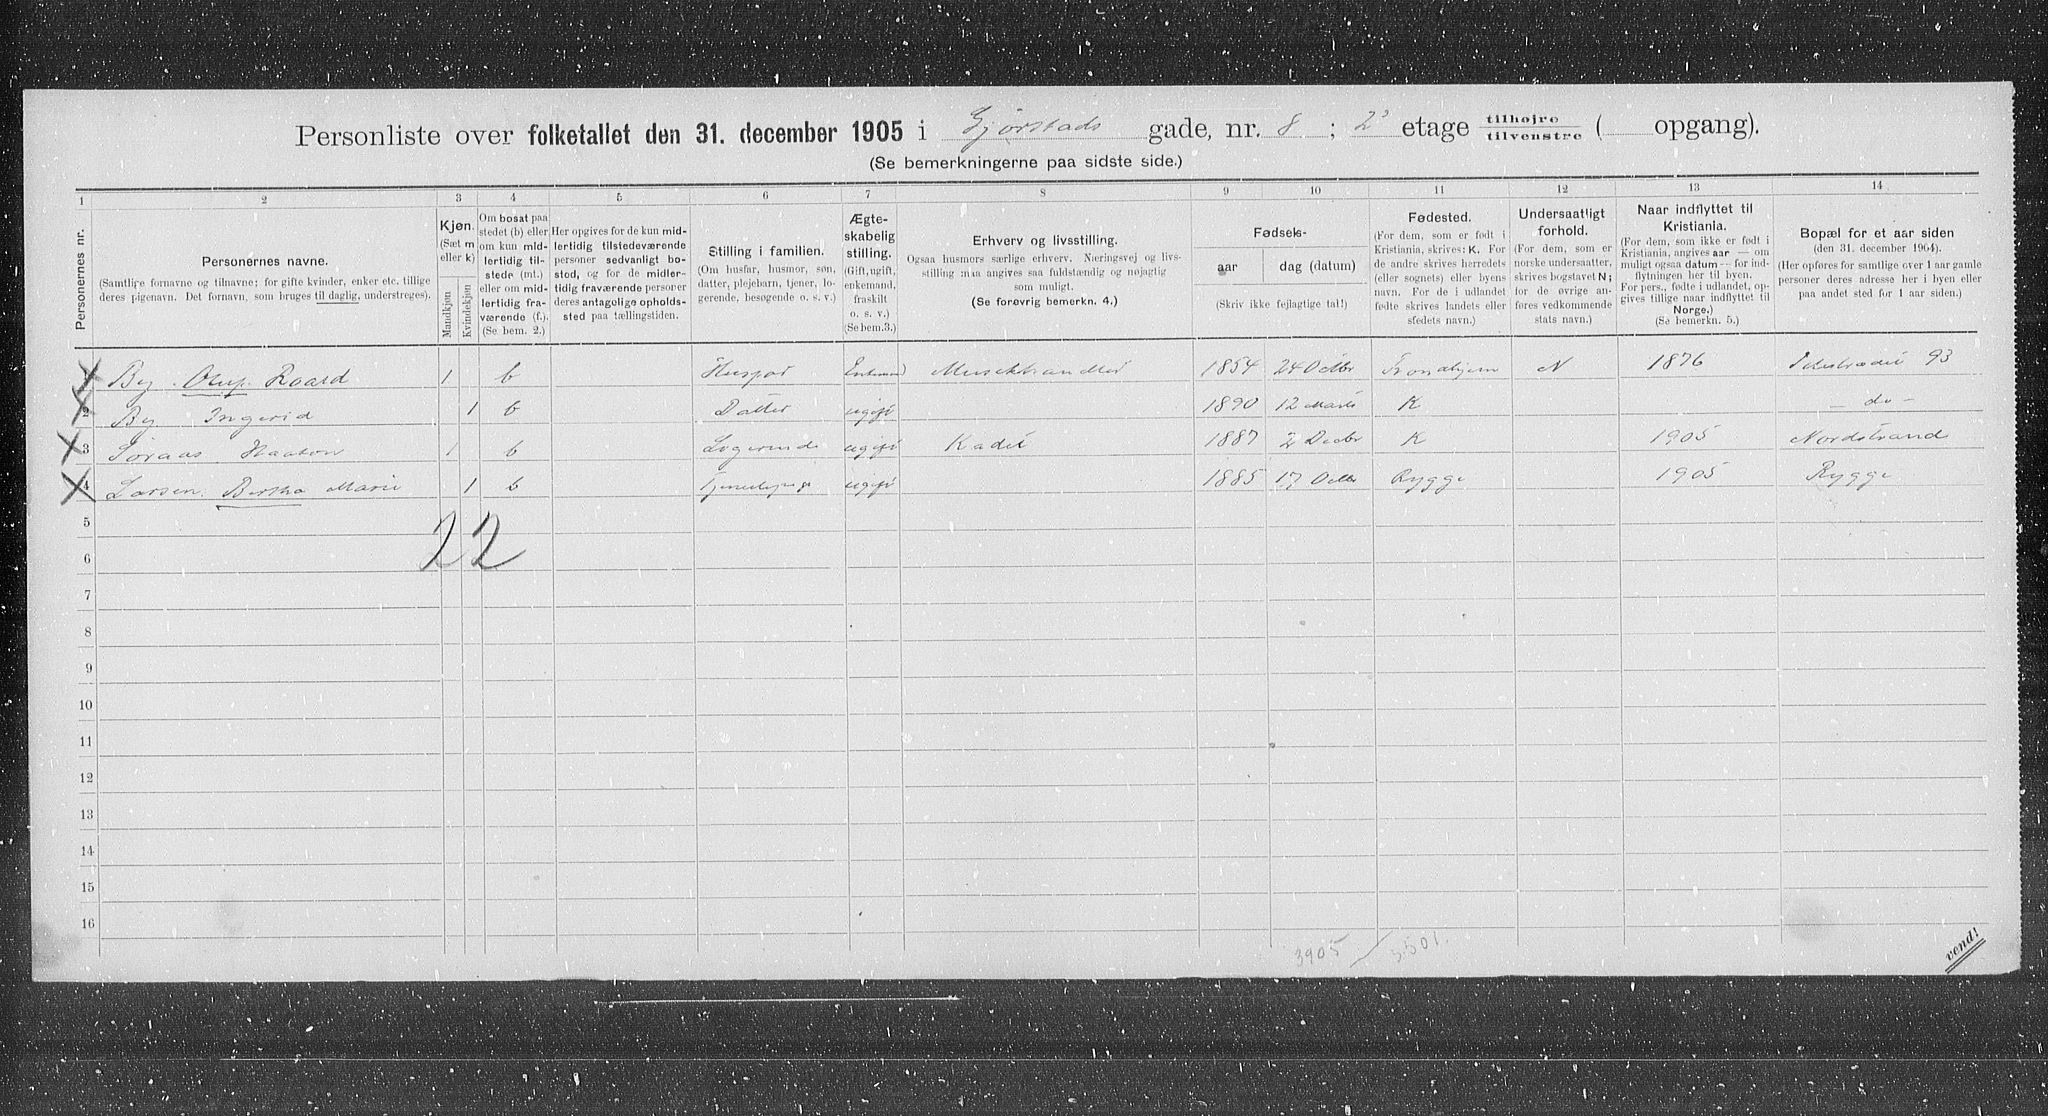 Personliste over folketallet den 31. december 1905 i Gjörstads gade, nr. 8 ; 2 etage tilhøjre tilvenstre ( opgang).
(Se bemerkningerne paa sidste side.)
1 2 3 4 5 6 7 8 9 10 11 12 13 14
Personernes nr.
Personernes navne.
(Samtlige fornavne og tilnavne; for gifte kvinder, enker etc. tillige
deres pigenavn. Det fornavn, som bruges til daglig, understreges).
Kjøn.
(Sæt m
eller k)
Mandkjøn
Kvindekjøn
Om bosat paa
stedet (b) eller
om kun mid-
lertidig til-
stede (mt.)
eller om mid-
lertidig fra-
værende (f.).
(Se bem. 2.)
Her opgives for de kun mid-
lertidig tilstedeværende
personer sedvanligt bo-
sted, og for de midler-
tidig fraværende personer
deres antagelige opholds-
sted paa tællingstiden.
Stilling i familien.
(Om husfar, husmor, søn,
datter, plejebarn, tjener, lo-
gerende, besøgende o. s. v.)
Ægte-
skabelig
stilling.
(Gift, ugift,
enkemand,
fraskilt
o. s. v.)
(Se bem.3.)
Erhverv og livsstilling.
Ogsaa husmors særlige erhverv. Næringsvej og livs-
stilling maa angives saa fuldstændig og nøjagtig
som muligt.
(Se forøvrig bemerkn. 4.)
Fødsels-
aar dag (datum)
(Skriv ikke fejlagtige tal!)
Fødested.
(For dem, som er født i
Kristiania, skrives: K. For
de andre skrives herredets
(eller sognets) eller byens
navn. For de i udlandet
fødte skrives landets eller
stedets navn.)
Undersaatligt
forhold.
(For dem, som er
norske undersaatter,
skrives bogstavet N;
for de øvrige an-
føres vedkommende
stats navn.)
Naar indflyttet til
Kristiania.
(For dem, som ikke er født i
Kristiania, angives aar — om
muligt ogsaa datum — for ind-
flytningen her til byen.
For pers., fødte i udlandet, op-
gives tillige naar indflyttet til
Norge.)
(Se bemerkn. 5.)
Bopæl for et aar siden
(den 31. december 1904).
(Her opføres for samtlige over 1 aar gamle
personer deres adresse her i byen eller
paa andet sted for 1 aar siden.)
1 By. Oluf. Roard 1 b Husfar Enkemand Musikhandler 1854 24 Octbr Trondhjem N 1876 93
2 By. Ingerid 1 b Datter ugift 1890 12 Marts K — do —
3 Søraas Haakon 1 b Logerende ugift Kadet 1887 2 Decbr K 1905 Nordstrand
4 Larsen. Bertha Marie 1 b Tjenestepige ugift 1885 17 Octbr Rygge 1905 Rygge
5
2 2
6
7
8
9
10
11
12
13
14
15
16
3905 / 3501.
vend!